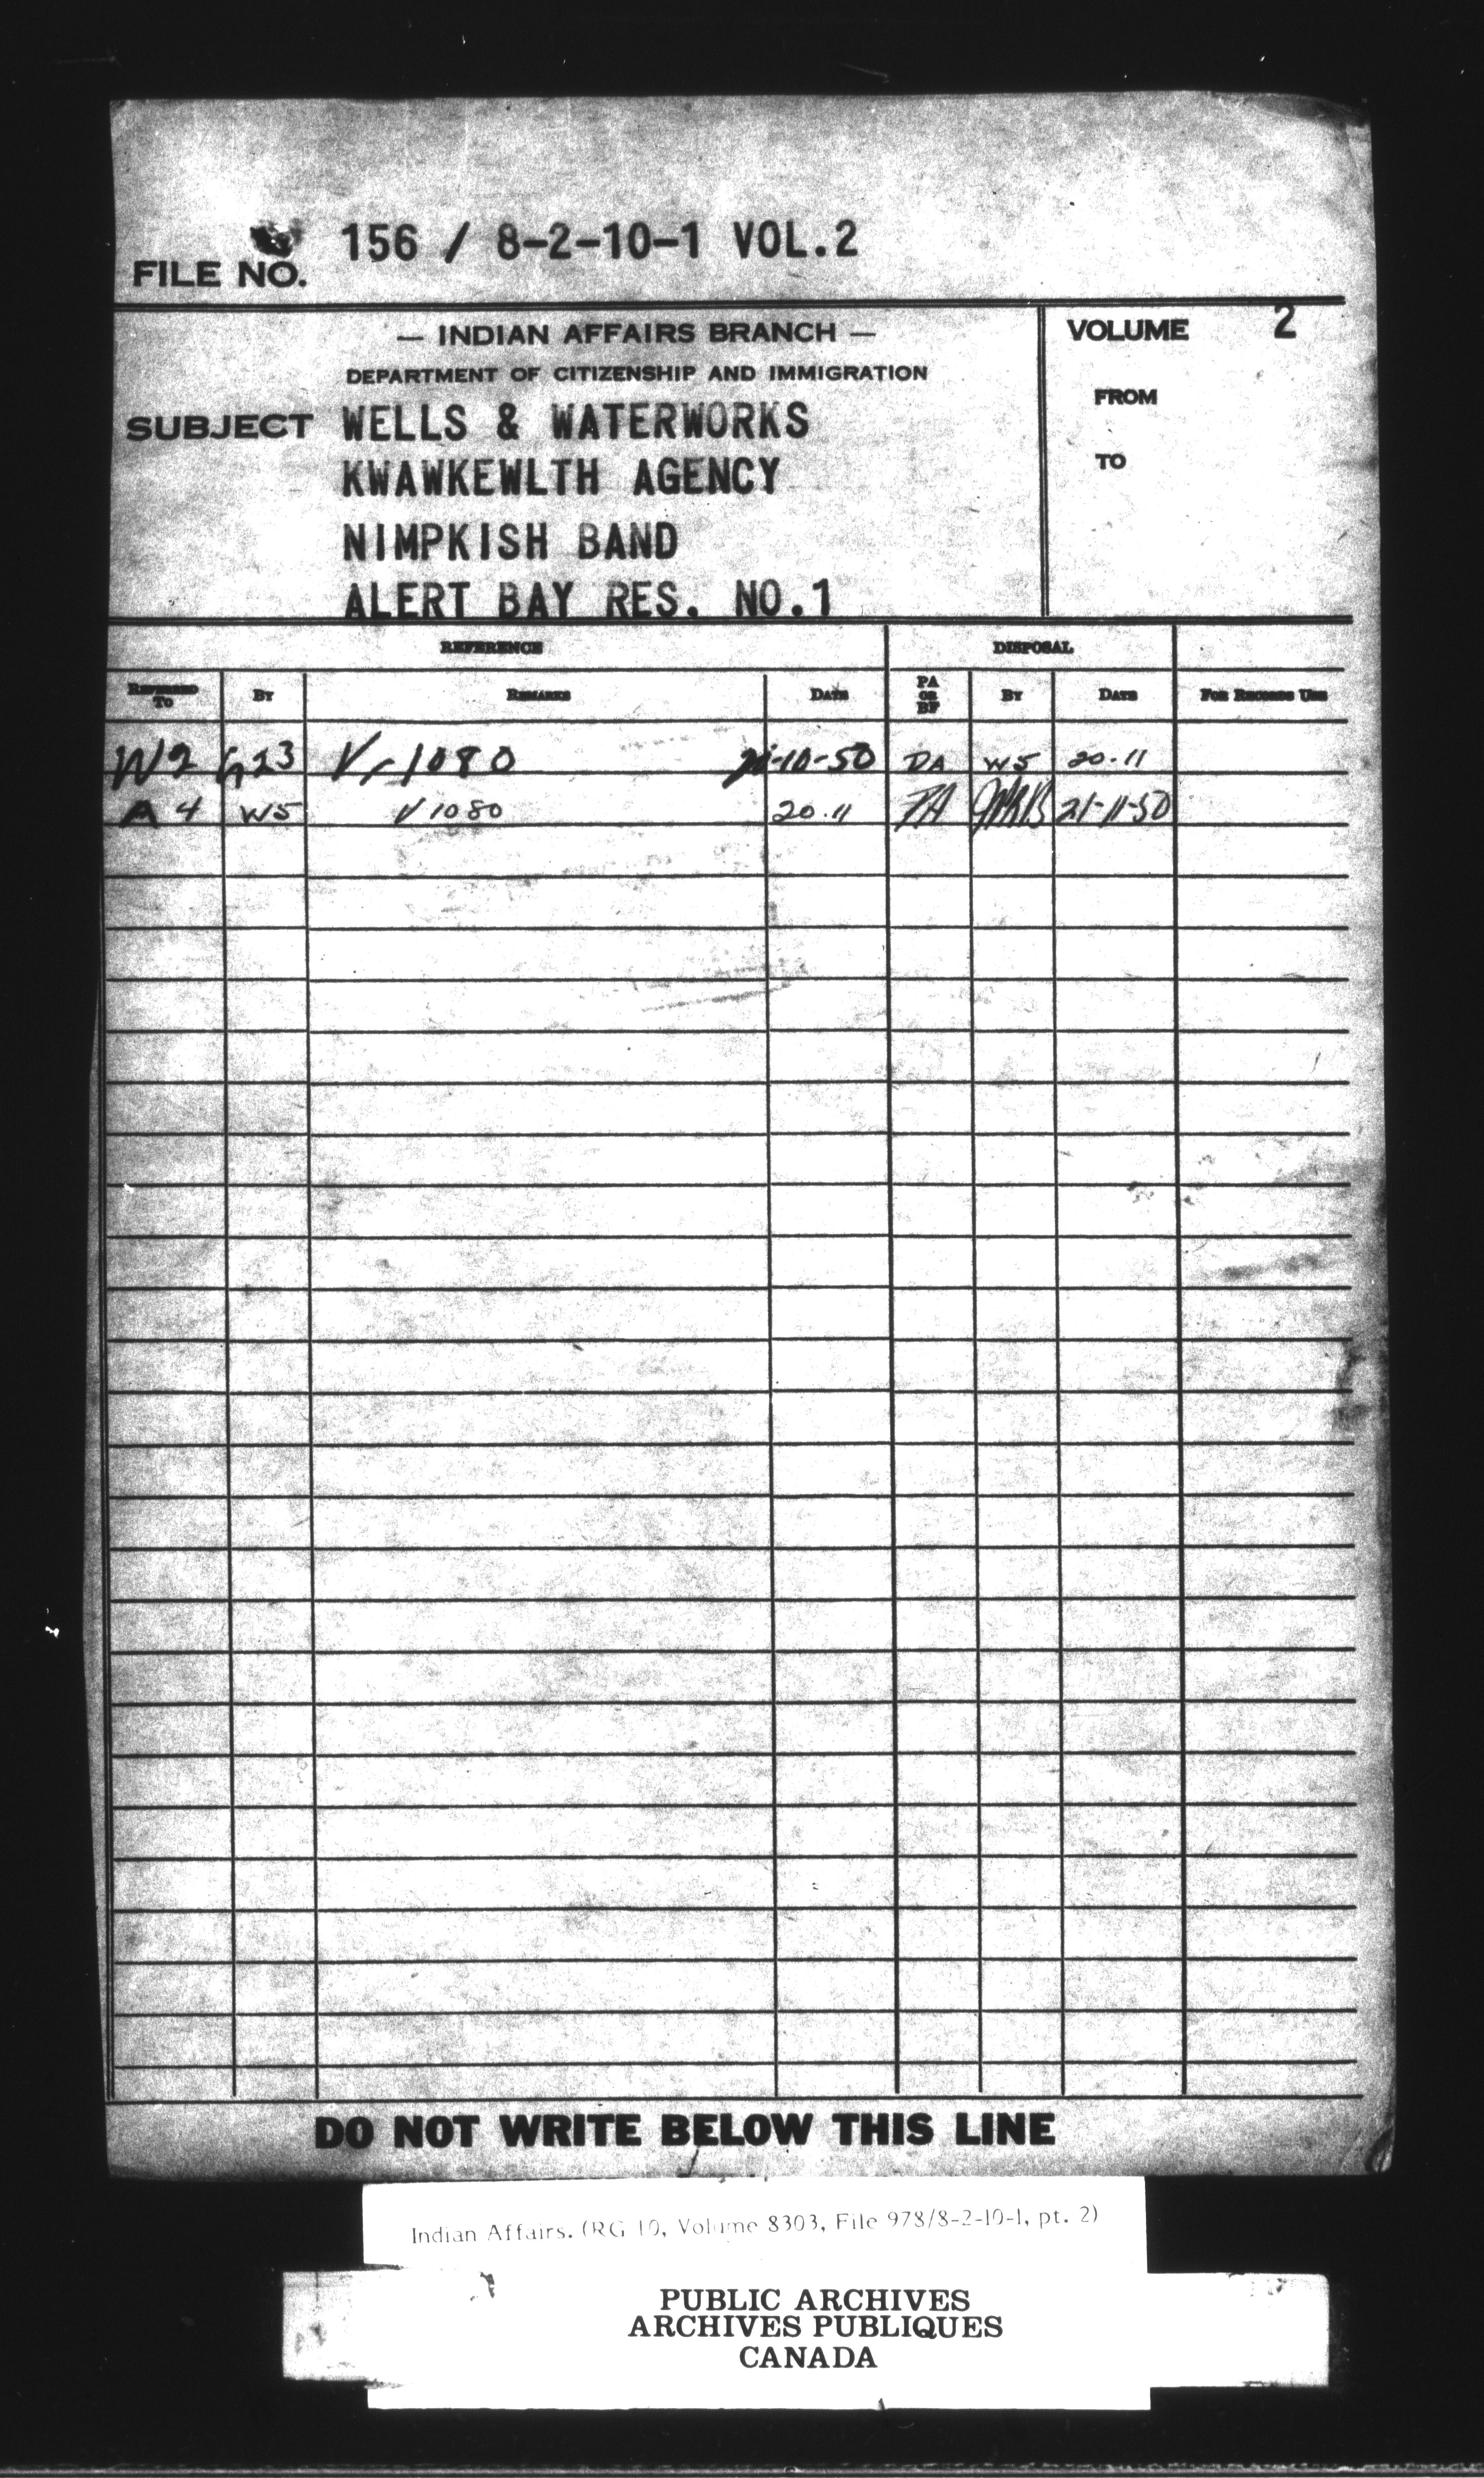 156 / 8-2-10-1 VOL.2
FILE NO.
— INDIAN AFFAIRS BRANCH —
DEPARTMENT OF CITIZENSHIP AND IMMIGRATION
SUBJECT WELLS & WATERWORKS
KWAWKEWLTH AGENCY
NIMPKISH BAND
ALERT BAY RES. NO.1
VOLUME 2
FROM
TO
REFERENCE DISPOSAL
REFERRED TO BY REMARKS DATE PA OR BF BY DATE FOR RECORDS USE
W2 G23 Vr 1080 -10-50 PA W5 20.11
A 4 W5 V 1080 20.11 PA 21-11-50
DO NOT WRITE BELOW THIS LINE
Indian Affairs. (RG 10, Volume 8303, File 978/8-2-10-1, pt. 2)
PUBLIC ARCHIVES
ARCHIVES PUBLIQUES
CANADA